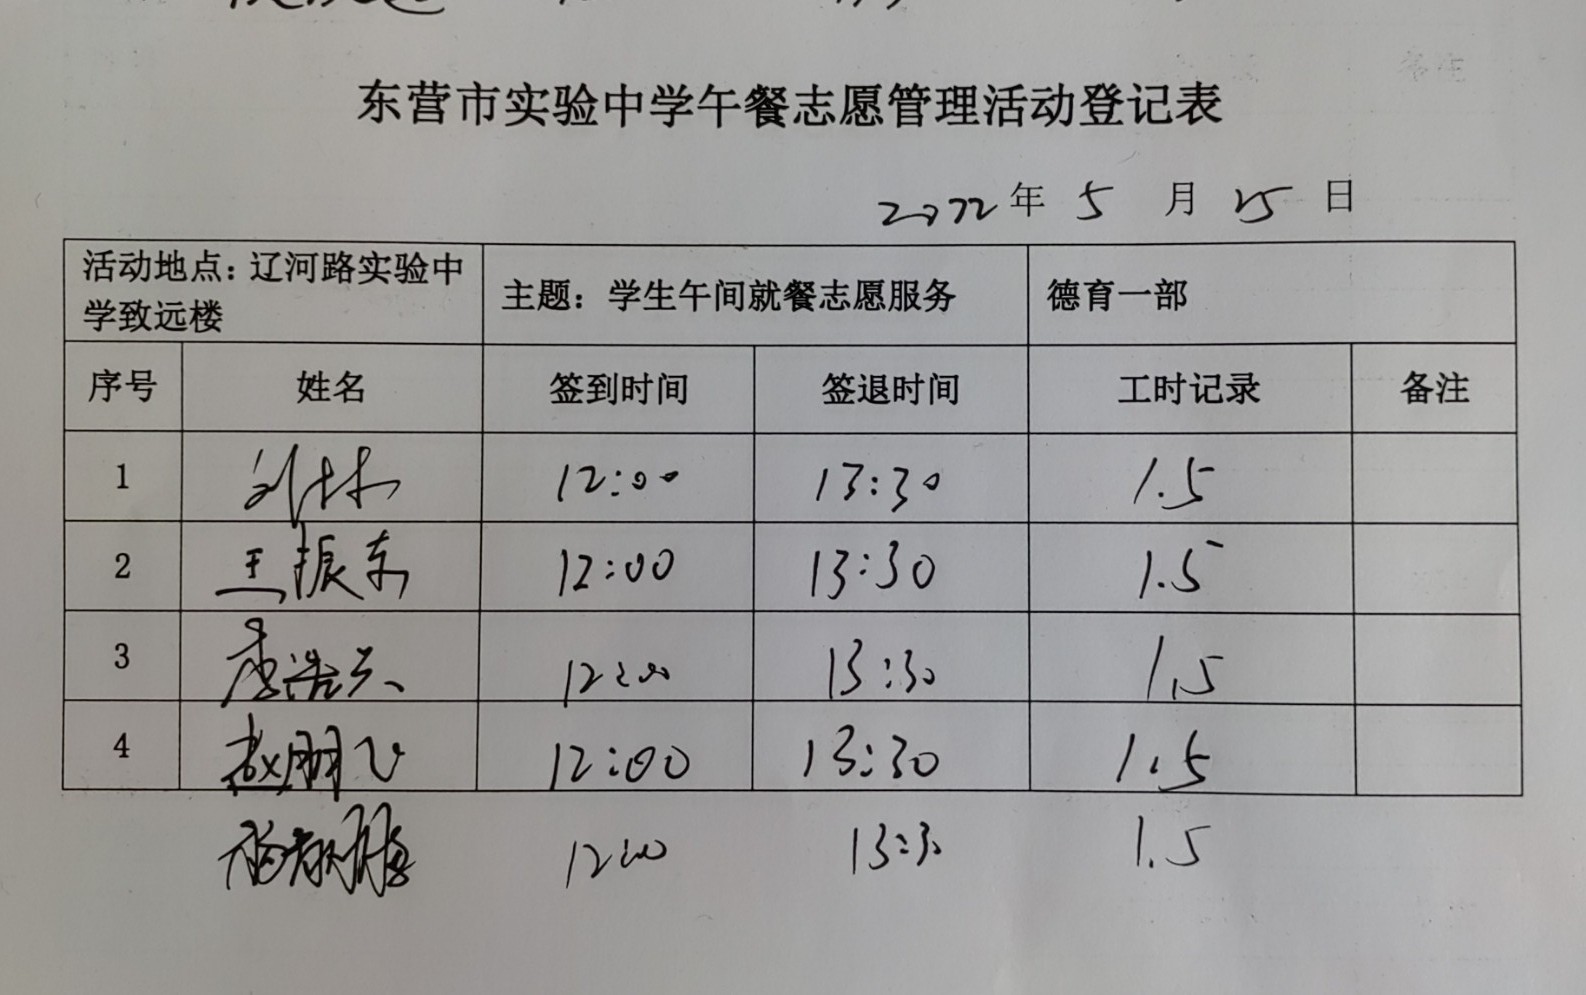 东营市实验中学午餐志愿管理活动登记表
2022年 5 月 25 日
活动地点：辽河路实验中
学致远楼
主题：学生午间就餐志愿服务
德育一部
序号 姓名 签到时间 签退时间 工时记录 备注
1 刘林 12:00 13:30 1.5
2 王振东 12:00 13:30 1.5
3 李浩 12:00 13:30 1.5
4 赵朋飞 12:00 13:30 1.5
12:00 13:30 1.5